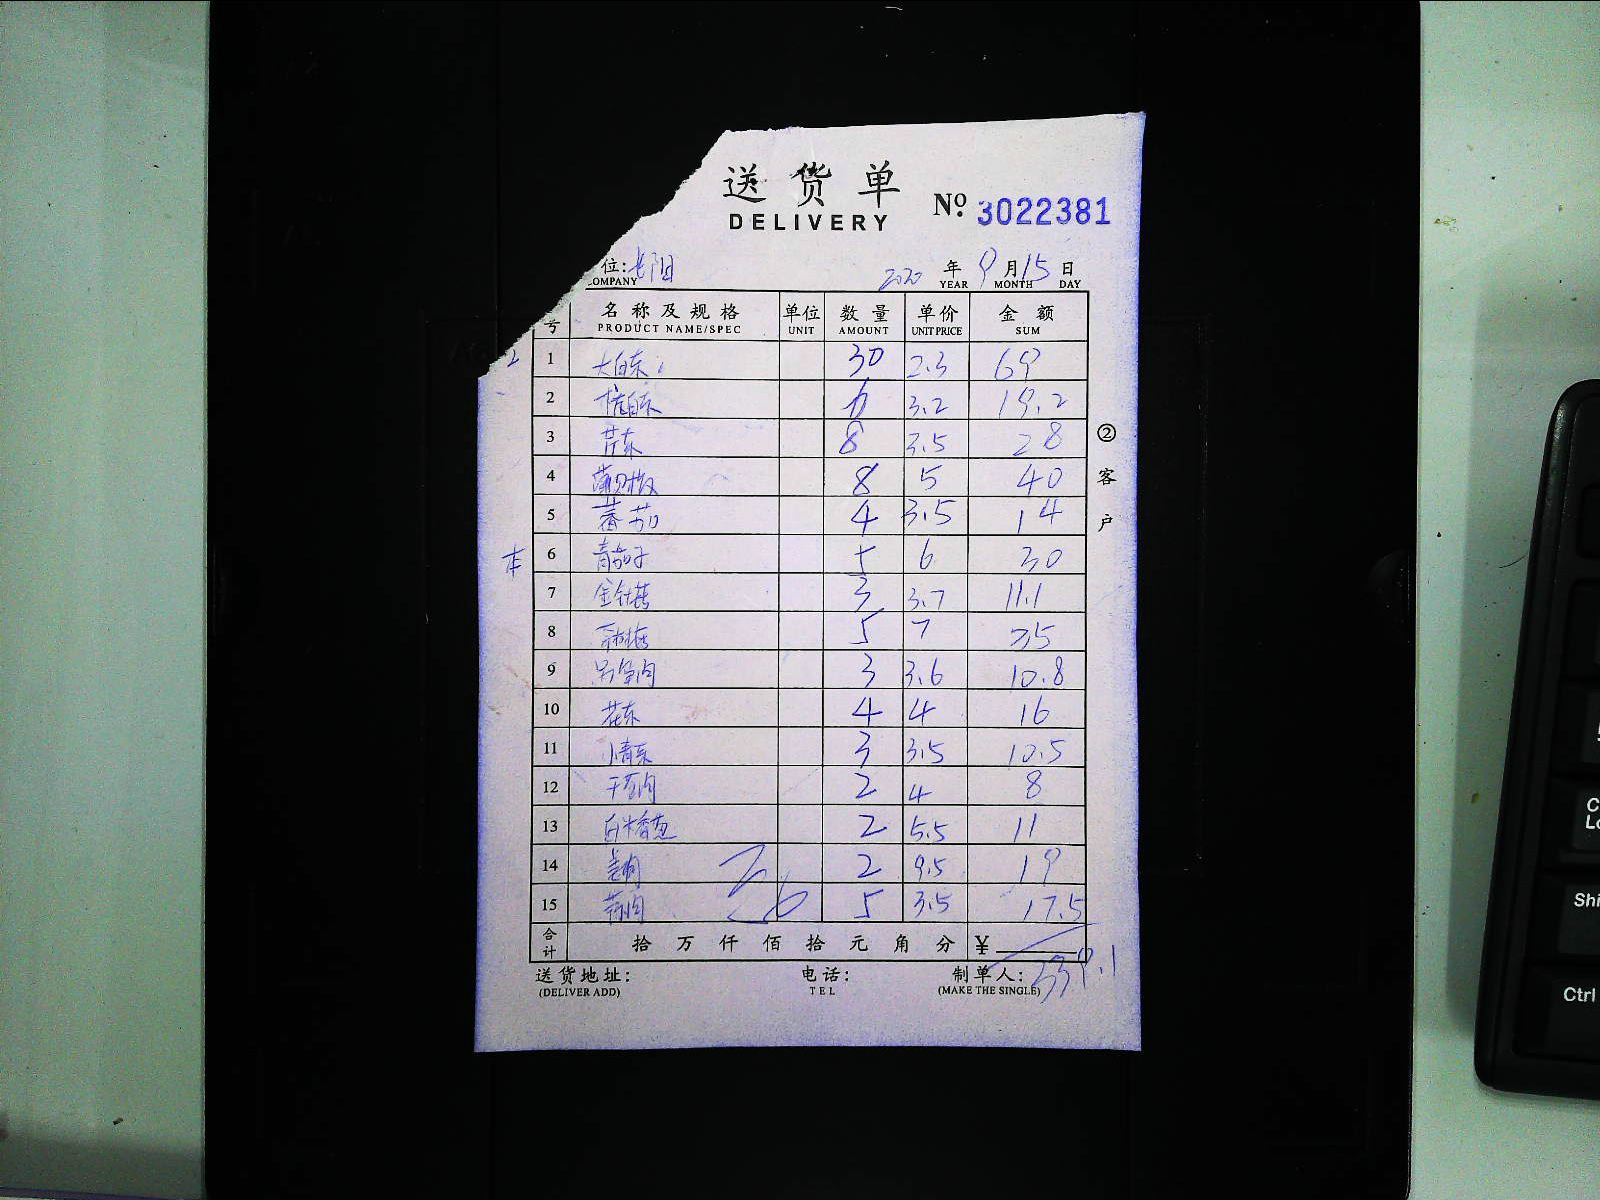 送货单
DELIVERY
Nº. 3022381
位: 长阳 2020 年 9 月 15 日
COMPANY YEAR MONTH DAY
号 名称及规格 单位 数量 单价 金额
PRODUCT NAME/SPEC UNIT AMOUNT UNIT PRICE SUM
1 大白东 30 2.3 69
2 6 3.2 19.2
3 芹东 8 3.5 28
4 8 5 40
5 蕃茄 4 3.5 14
本 6 青茄子 5 6 30
7 金针菇 3 3.7 11.1
8 5 7 35
9 3 3.6 10.8
10 花东 4 4 16
11 小青东 3 3.5 10.5
12 2 4 8
13 2 5.5 11
14 2 9.5 19
15 5 3.5 17.5
合计 拾 万 仟 佰 拾 元 角 分 ¥ 339.1
送货地址: 电话: 制单人:
(DELIVER ADD) TEL (MAKE THE SINGLE)
② 客户